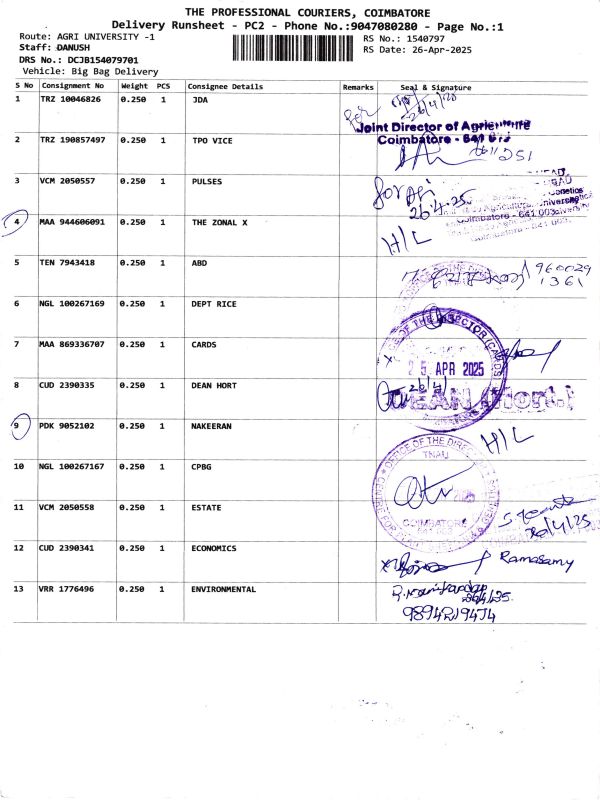 THE PROFESSIONAL COURIERS, COIMBATORE
Delivery Runsheet - PC2 - Phone No.:9047080280 - Page No.:1
Route: AGRI UNIVERSITY -1
RS No.: 1540797
Staff: DANUSH
RS Date: 26-Apr-2025
DRS No.: DCJB154079701
Vehicle: Big Bag Delivery
S No Consignment No Weight PCS Consignee Details Remarks Seal & Signature
1 TRZ 10046826 0.250 1 JDA
for 26/4/25
Joint Director of Agriculture
Coimbatore - 641
2 TRZ 190857497 0.250 1 TPO VICE
3 VCM 2050557 0.250 1 PULSES
26.4.25
Coimbatore - 641 003
4 MAA 944606091 0.250 1 THE ZONAL X H/L
5 TEN 7943418 0.250 1 ABD
960029
1361
6 NGL 100267169 0.250 1 DEPT RICE
7 MAA 869336707 0.250 1 CARDS
OFFICE OF THE DIRECTOR (CARDS)
25 APR 2025
8 CUD 2390335 0.250 1 DEAN HORT
26/4/
DEAN (Hort.)
9 PDK 9052102 0.250 1 NAKEERAN H/L
10 NGL 100267167 0.250 1 CPBG
OFFICE OF THE DIRECTOR
TNAU
2025
COIMBATORE
11 VCM 2050558 0.250 1 ESTATE
26/4/25
12 CUD 2390341 0.250 1 ECONOMICS Ramasamy
13 VRR 1776496 0.250 1 ENVIRONMENTAL